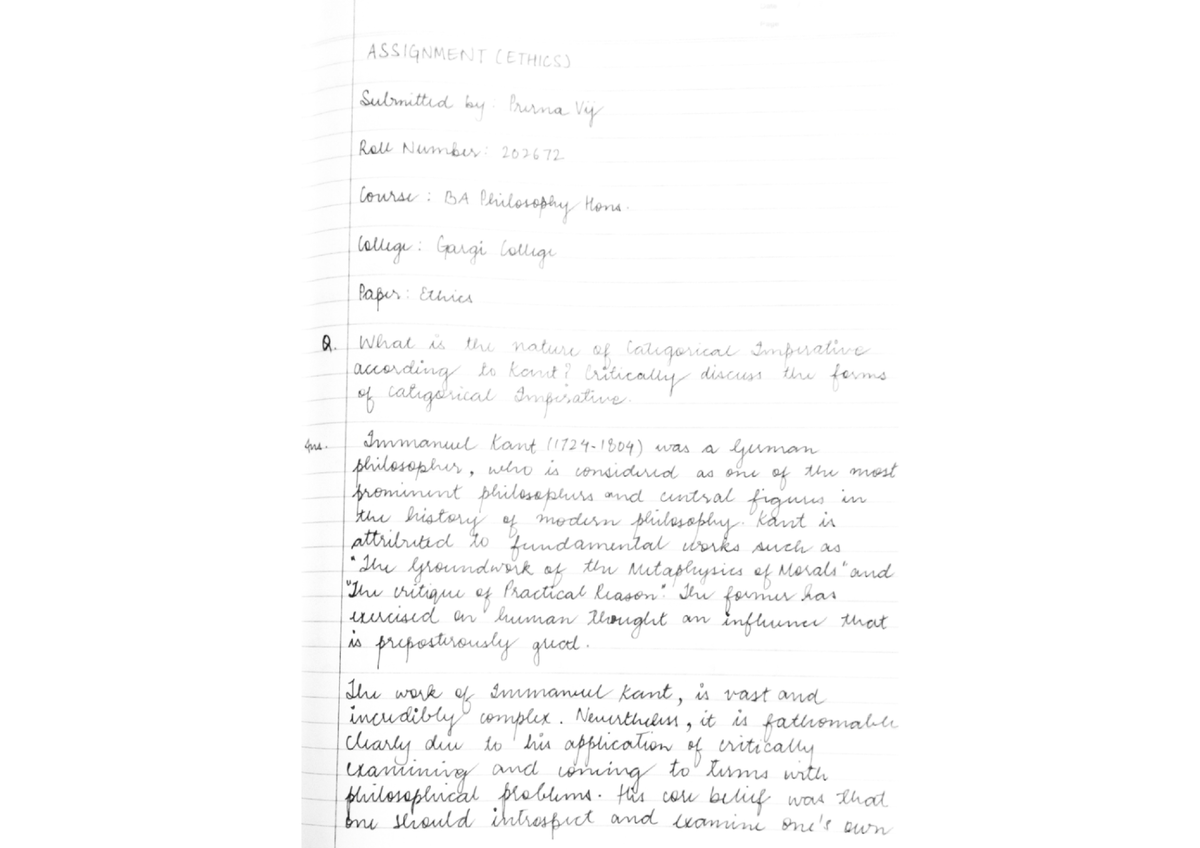 ASSIGNMENT (ETHICS)
Submitted by: Prerna Vij
Roll Number: 202672
Course: BA Philosophy Hons.
College: Gargi College
Paper: Ethics
Q. What is the nature of Categorical Imperative
according to Kant? Critically discuss the forms
of Categorical Imperative.
Ans. Immanuel Kant (1724-1804) was a German
philosopher, who is considered as one of the most
prominent philosophers and central figures in
the history of modern philosophy. Kant is
attributed to fundamental works such as
"The Groundwork of the Metaphysics of Morals" and
"The critique of Practical Reason". The former has
exercised on human thought an influence that
is preposterously great.
The work of Immanuel Kant, is vast and
incredibly complex. Nevertheless, it is fathomable
clearly due to his application of critically
examining and coming to terms with
philosophical problems. His core belief was that
one should introspect and examine one's own